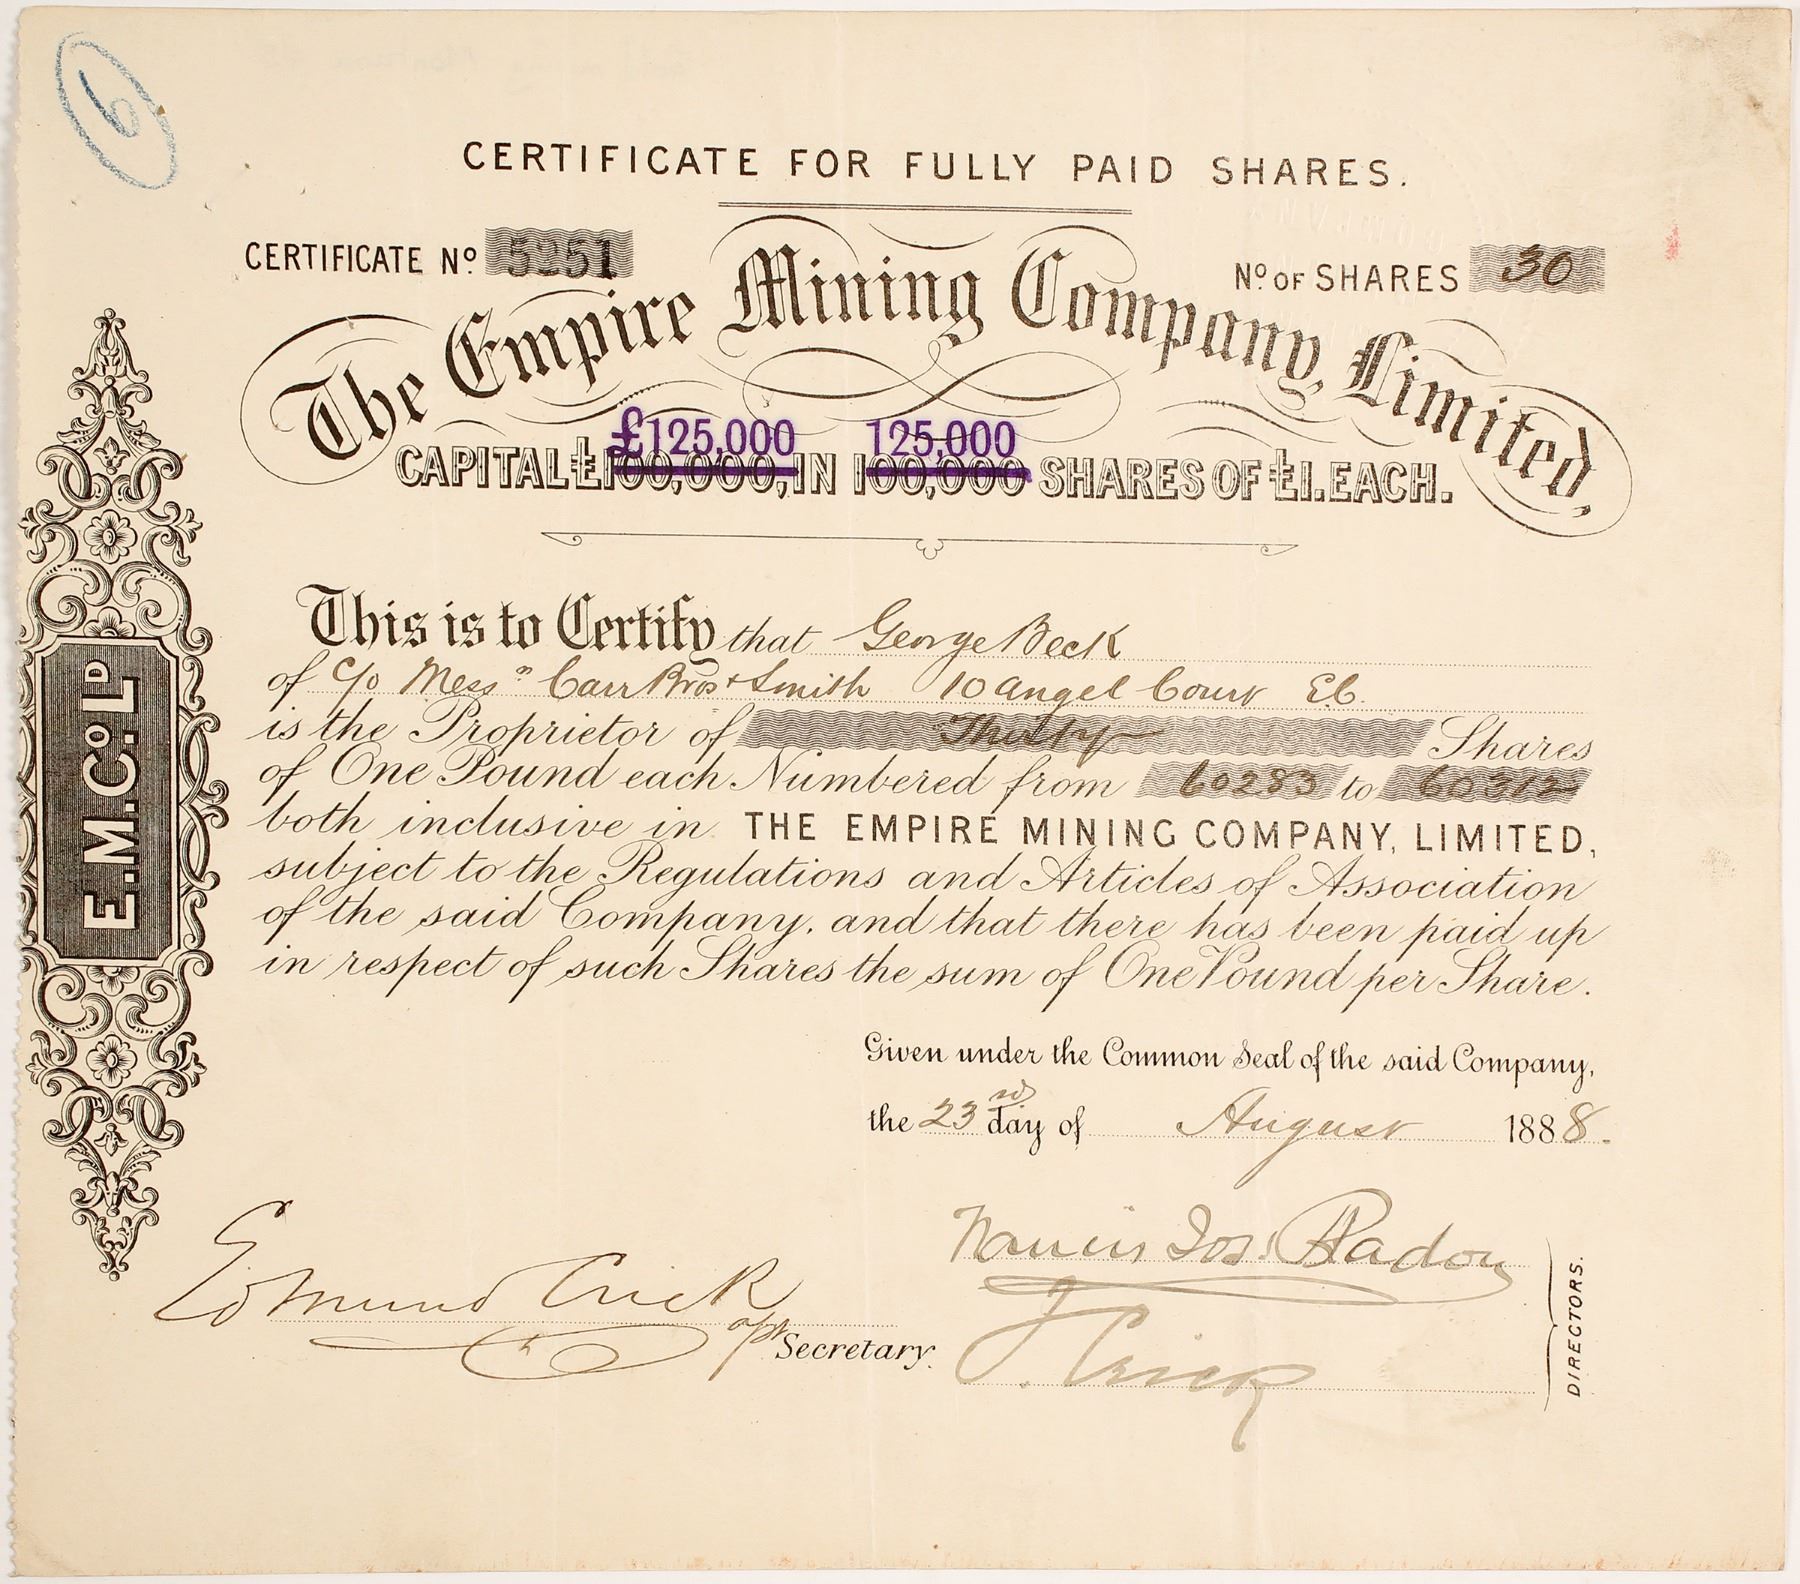 6
CERTIFICATE FOR FULLY PAID SHARES.
CERTIFICATE Nº 5251
Nº OF SHARES 30
The Empire Mining Company, Limited,
£125,000 125,000
CAPITAL £100,000, IN 100,000 SHARES OF £1. EACH.
E.M.Cº. Lᴰ
This is to Certify that George Beck
of c/o Messrs Carr Bros & Smith 10 Angel Court E.C.
is the Proprietor of Thirty Shares
of One Pound each Numbered from 60283 to 60312
both inclusive in THE EMPIRE MINING COMPANY, LIMITED,
subject to the Regulations and Articles of Association
of the said Company, and that there has been paid up
in respect of such Shares the sum of One Pound per Share.
Given under the Common Seal of the said Company,
the 23rd day of August 1888.
Francis Jos.
Edmund Crick
Secretary.
J. Crick
DIRECTORS.